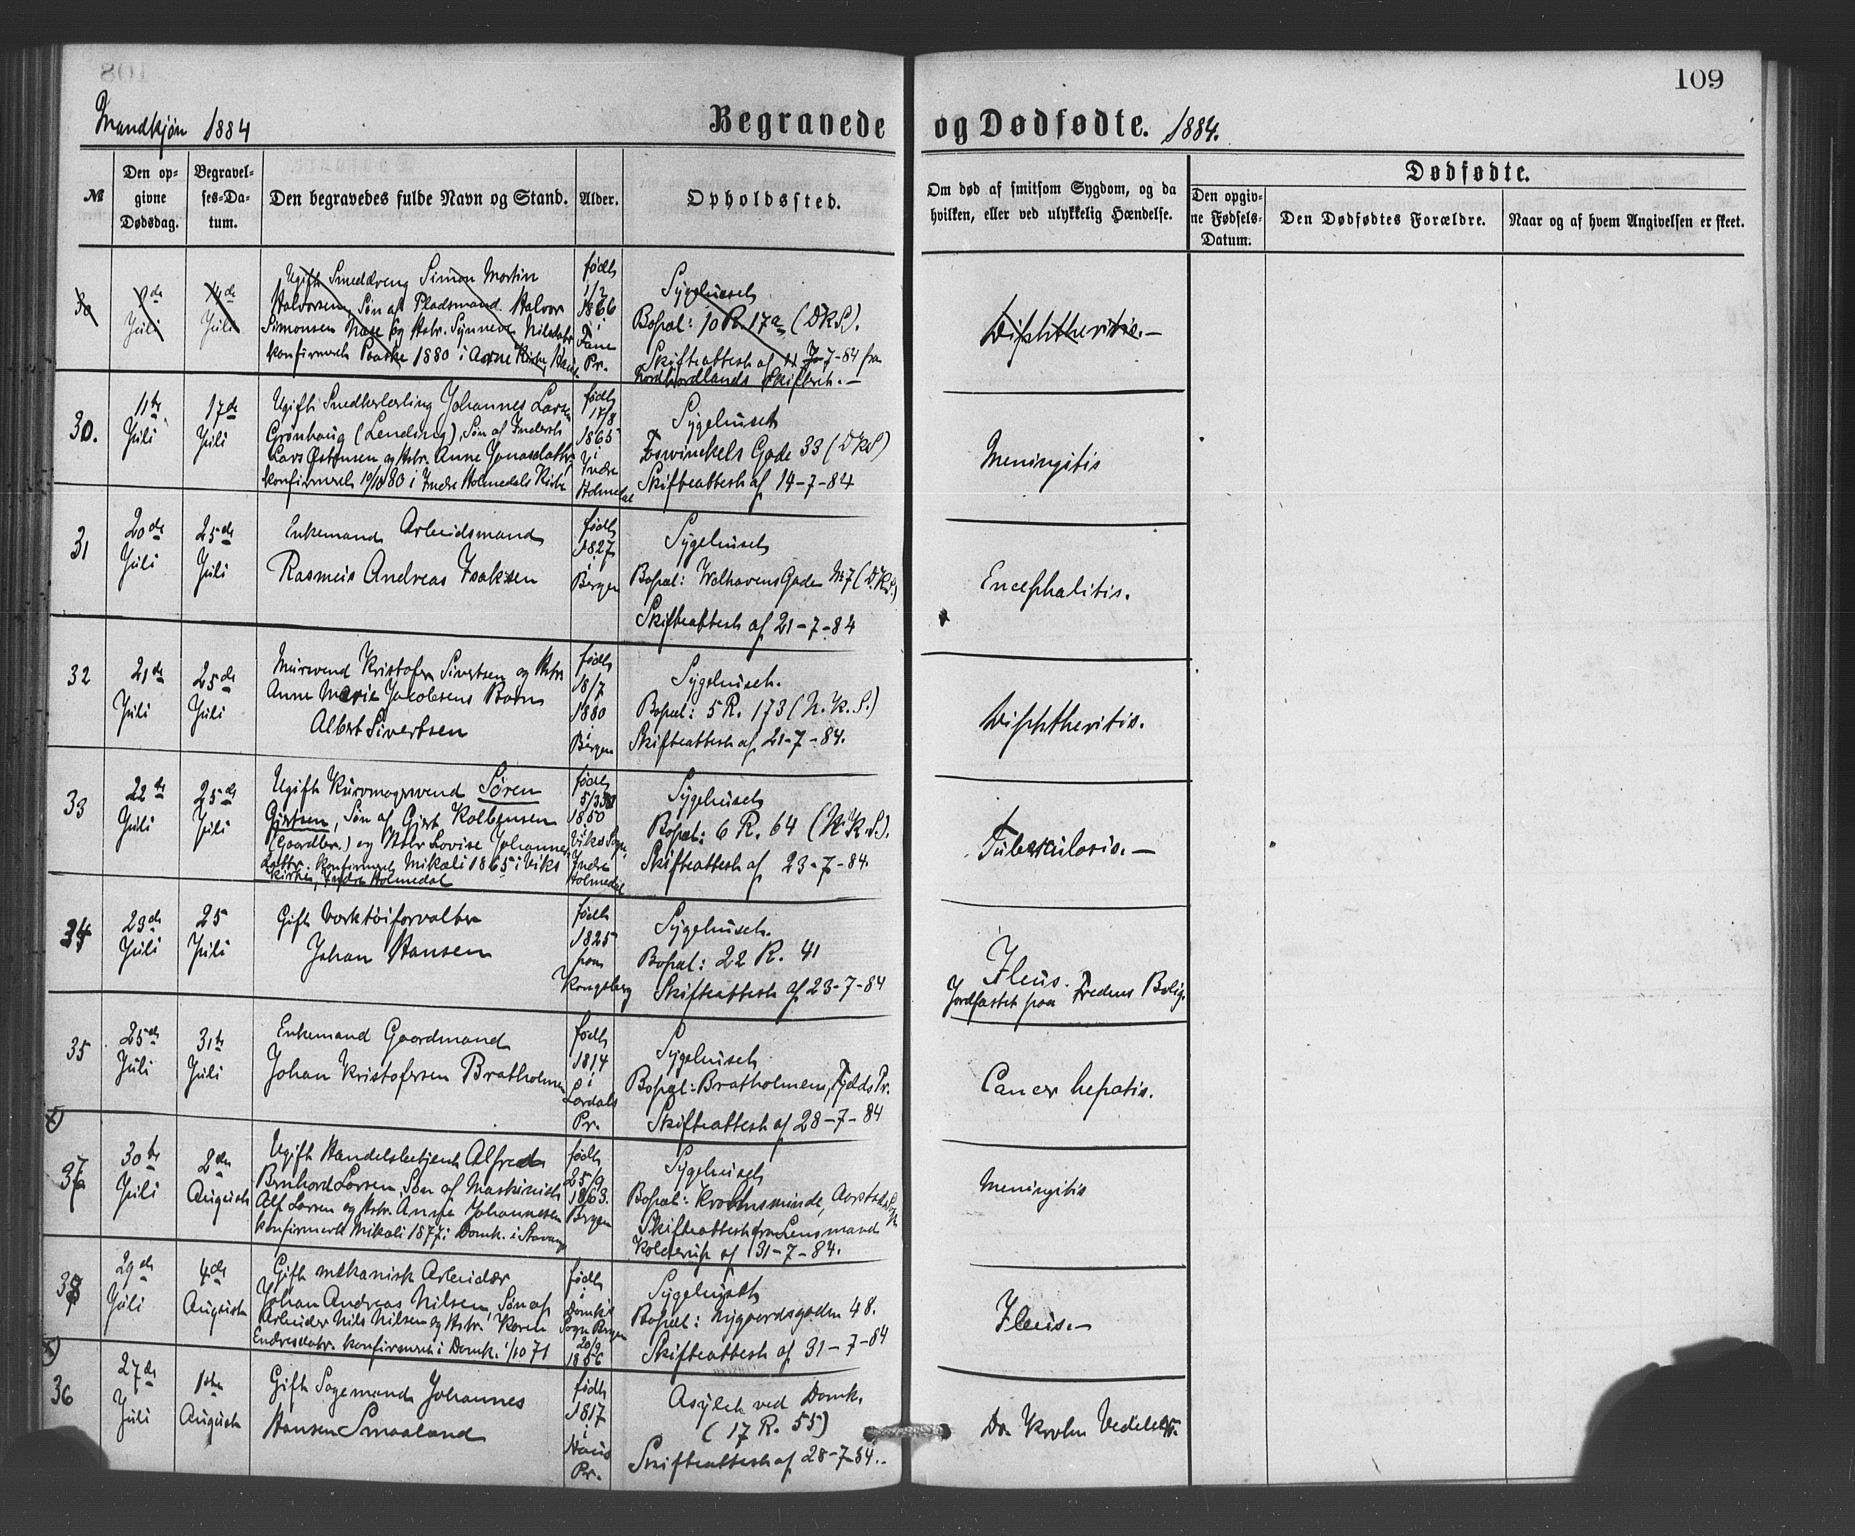 109
Mandkjøn 1884
Begravede og Dødfødte. 1884.
№
Den opgivne Dødsdag.
Begravelses-Datum.
Den begravedes fulde Navn og Stand.
Alder.
Opholdssted.
Om død af smitsom Sygdom, og da hvilken, eller ved ulykkelig Hændelse.
Dødfødte.
Den opgivne Fødsels-Datum.
Den Dødfødtes Forældre.
Naar og af hvem Angivelsen er skeet.
30
8de Juli
Juli
Ugift Smeddreng Simon Mortin
Halvorsen, Søn af Pladsmand Halvor
Simonsen og Hstr. Synneve Nilsdatr
konfirmeret Paaske 1880 i Aarne Kirke
født 1/2 1866 i Fane Pr.
Sygehuset
Bopæl: 10 R. 17a (DkS).
Skifteattest af 11-7-84 fra
Nordhordlands Skifteret. —
Diphtheritis. —
30.
11te Juli
17de Juli
Ugift Snedkerlærling Johannes Larsen
Grønhaug (Lending), Søn af Inderst
Lars Østensen og Hstr. Anne Jonasdatter
konfirmeret 10/10 80 i Indre Holmedals Kirke
født 17/8 1865 i Indre Holmedal
Sygehuset
Foswinckels Gade 33 (DkS)
Skifteattest af 14-7-84
Meningitis
31
20de Juli
25de Juli
Enkemand Arbeidsmand
Rasmus Andreas Isaksen
født 1827 i Bergen
Sygehuset
Bopæl: Welhavens Gade № 7 (D.K.S.)
Skifteattest af 21-7-84
Encephalitis.
32
21de Juli
25de Juli
Mursvend Kristofer Sivertsen og Hstr
Anne Marie Jacobsens Barn
Albert Sivertsen
født 18/7 1880 i Bergen
Sygehuset.
Bopæl: 5 R. 173 (N.K.S.)
Skifteattest af 21-7-84.
Diphtheritis.
33
22de Juli
25de Juli
Ugift Kurvmagersvend Søren
Gjertsen, Søn af Gjert Kolbensen
(Gaardbr.) og Hstr Lovise Johannes
datter. konfirmeret Mikali 1865 i Viks
Kirke, Indre Holmedal
født 5/3 1850 Viks Sogn, Indre Holmedal
Sygehuset
Bopæl: 6 R. 64 (N.K.S.).
Skifteattest af 23-7-84.
Tuberkulosis. —
34
23de Juli
25 Juli
Gift Værktøiforvalter
Johan Hansen
født 1825 paa Kongsberg
Sygehuset.
Bopæl: 22 R. 41
Skifteattest af 23-7-84
Ileus.
Jordfæstet paa Fredens Bolig.
35
25de Juli
31te Juli
Enkemand Gaardmand
Johan Kristofersen Bratholmen
født 1814 i Lærdals Pr.
Sygehuset
Bopæl: Bratholmen, Fjelds Pr.
Skifteattest af 28-7-84
Cancer hepatis.
37
30te Juli
2den August
Ugift Handelsbetjent Alfred
Bernhard Larsen, Søn af Maskinist
Alf Larsen og Hstr. Anne Johannesen
konfirmeret Mikali 1877 i Domk. i Stavanger
født 25/9 1863. Bergen
Sygehuset
Bopæl: Krohnsminde, Aarstad
Skifteattest fra Lensmand
Kolderup af 31-7-84.
Meningitis
38
29de Juli
4de August
Gift mekanisk Arbeider
Johan Andreas Nilsen, Søn af
Arbeider Nils Nilsen og Hstr. Karen
Endresdatr. konfirmeret i Domk. 1/10 71
født i Domk Sogn Bergen 20/9 1856
Sygehuset
Bopæl: Nygaardsgaden 48.
Skifteattest af 31-7-84
Ileus. —
36
27de Juli
1ste August
Gift Sagemand Johannes
Hansen Smaaland
født 1817 i Haus Pr.
Asylet ved Domk.
(17 R. 55)
Skifteattest af 28-7-84.
Dr Krohn